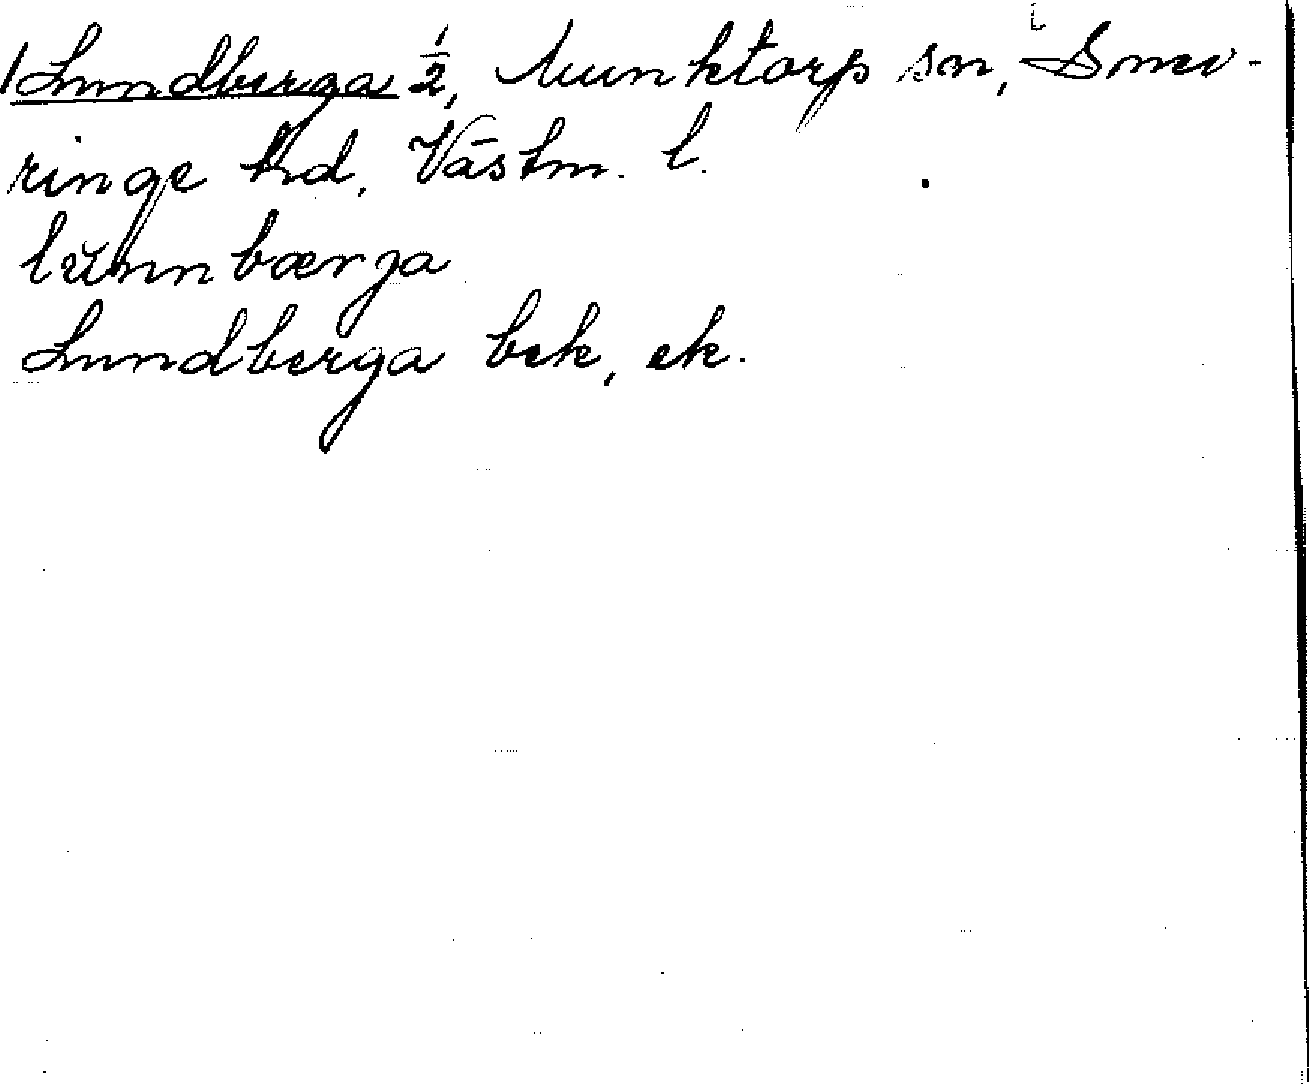 Lundberga ½, Munktorps sn, Snev-
ringe hd, Västm. l.
lŭnnbærja
Lundberga bek, ek.